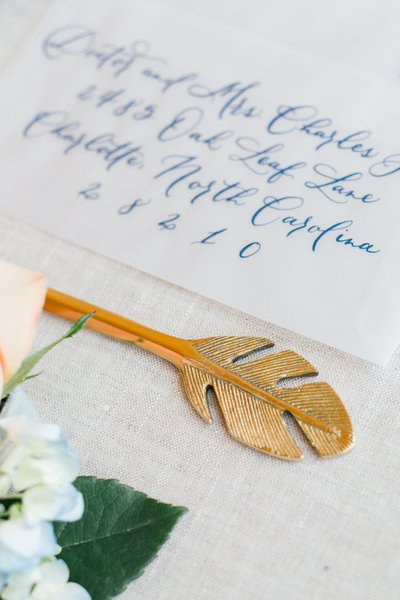 Doctor and Mrs. Charles
2485 Oak Leaf Lane
Charlotte, North Carolina
28210